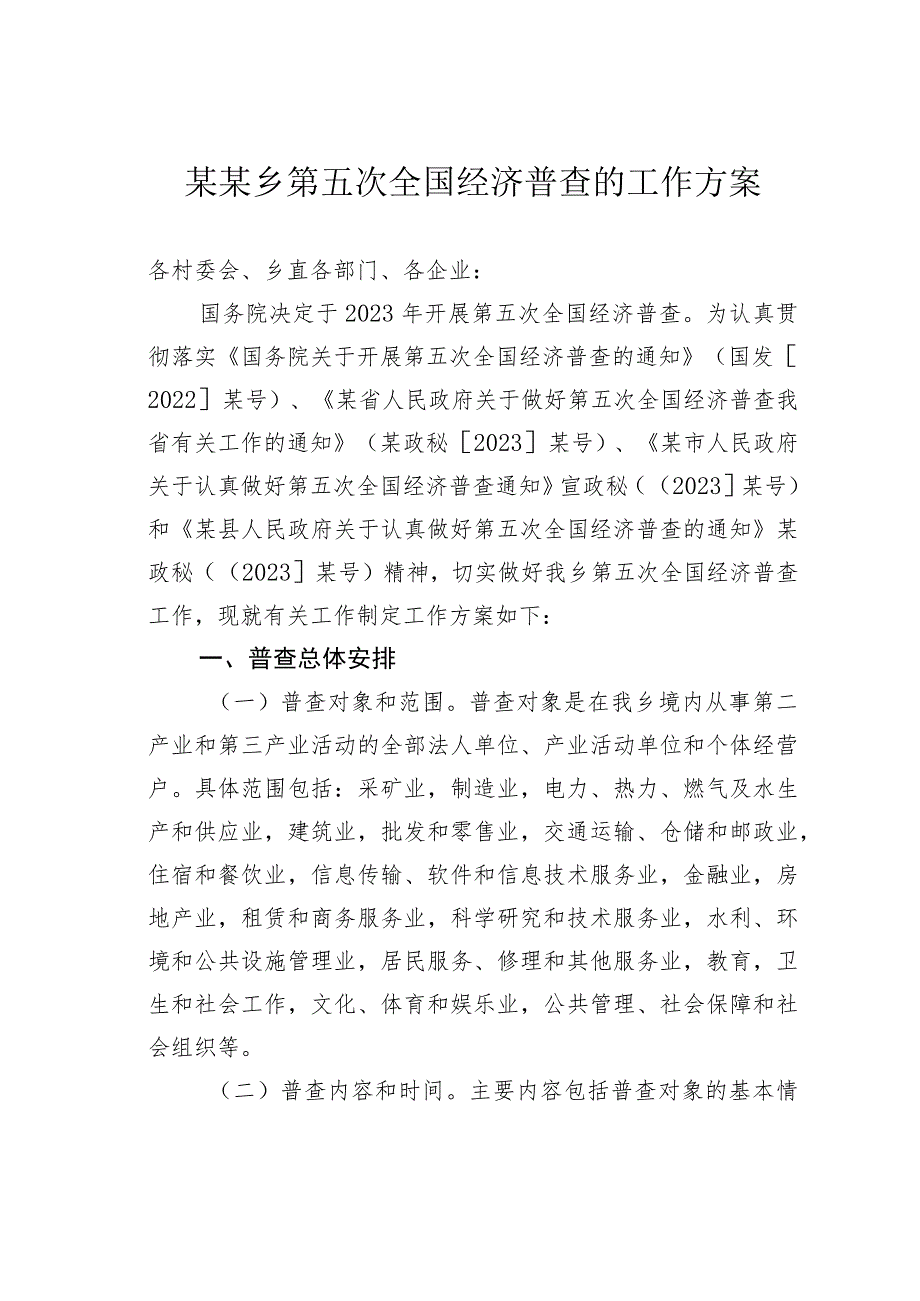 某某乡第五次全国经济普查的工作方案
各村委会、乡直各部门、各企业：
国务院决定于 2023 年开展第五次全国经济普查。为认真贯
彻落实《国务院关于开展第五次全国经济普查的通知》（国发［
2022］某号）、《某省人民政府关于做好第五次全国经济普查我
省有关工作的通知》（某政秘［2023］某号）、《某市人民政府
关于认真做好第五次全国经济普查通知》宣政秘（（2023］某号）
和《某县人民政府关于认真做好第五次全国经济普查的通知》某
政秘（（2023］某号）精神，切实做好我乡第五次全国经济普查
工作，现就有关工作制定工作方案如下：
一、普查总体安排
（一）普查对象和范围。普查对象是在我乡境内从事第二
产业和第三产业活动的全部法人单位、产业活动单位和个体经营
户。具体范围包括：采矿业，制造业，电力、热力、燃气及水生
产和供应业，建筑业，批发和零售业，交通运输、仓储和邮政业，
住宿和餐饮业，信息传输、软件和信息技术服务业，金融业，房
地产业，租赁和商务服务业，科学研究和技术服务业，水利、环
境和公共设施管理业，居民服务、修理和其他服务业，教育，卫
生和社会工作，文化、体育和娱乐业，公共管理、社会保障和社
会组织等。
（二）普查内容和时间。主要内容包括普查对象的基本情